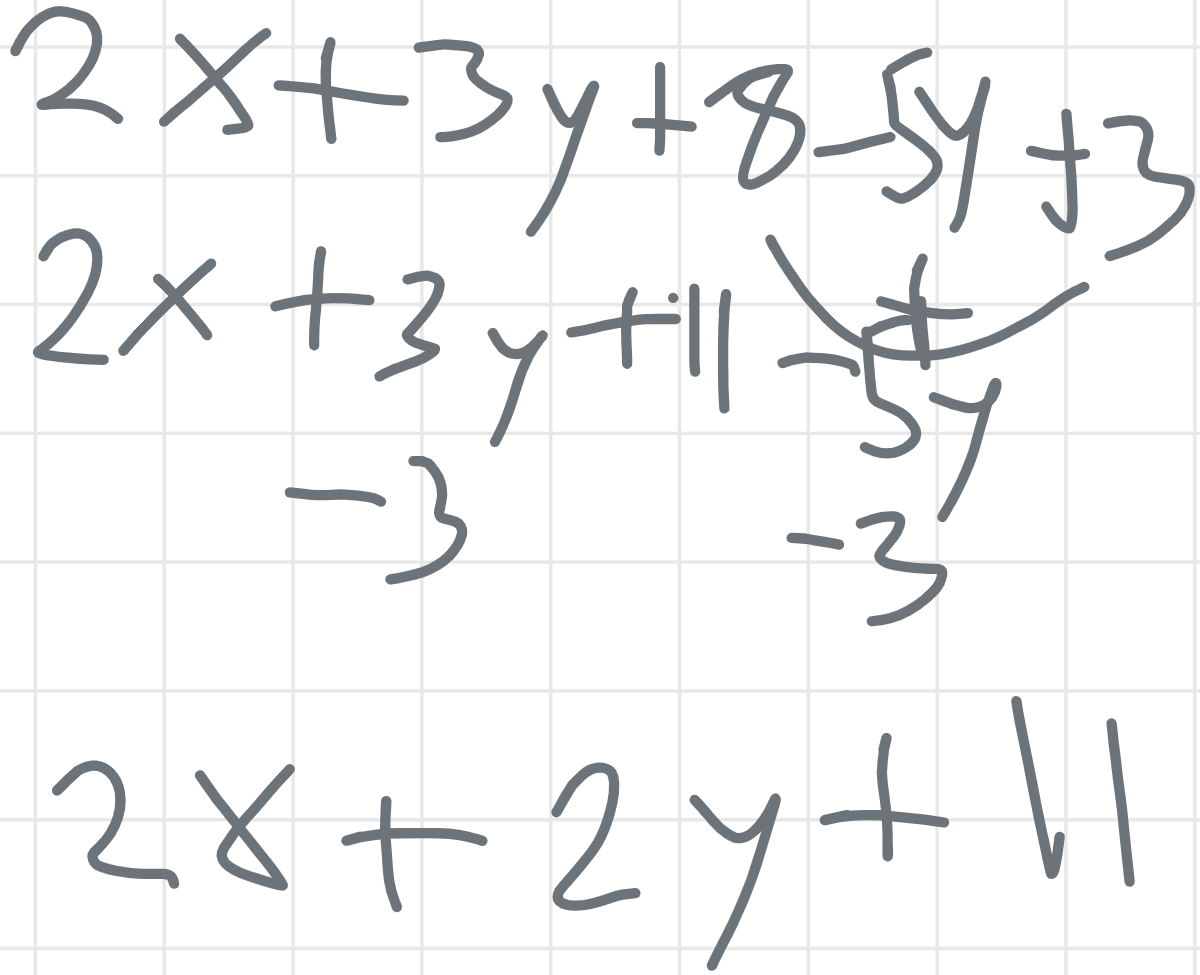 2x+3y+8-5y+3
2x+3y+11-5y
-3 -3
2x+2y+11